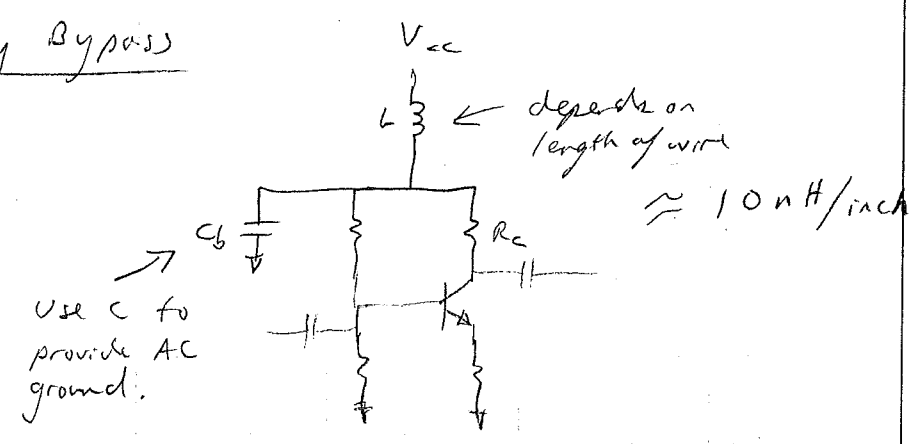 y Bypass
Vcc
L
depends on
length of wire
≈ 10 nH/inch
Cb
Rc
Use C to
provide AC
ground.